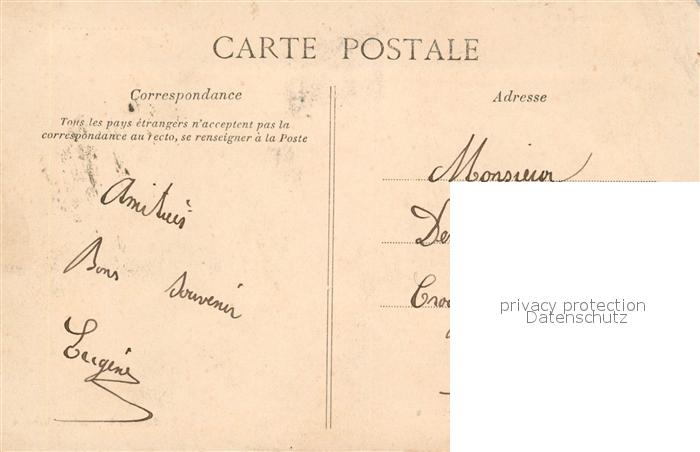 CARTE POSTALE
Correspondance
Tous les pays étrangers n'acceptent pas la
correspondance au recto, se renseigner à la Poste
Amitiés
Bons souvenir
Eugène
Adresse
Monsieur
privacy protection
Datenschutz